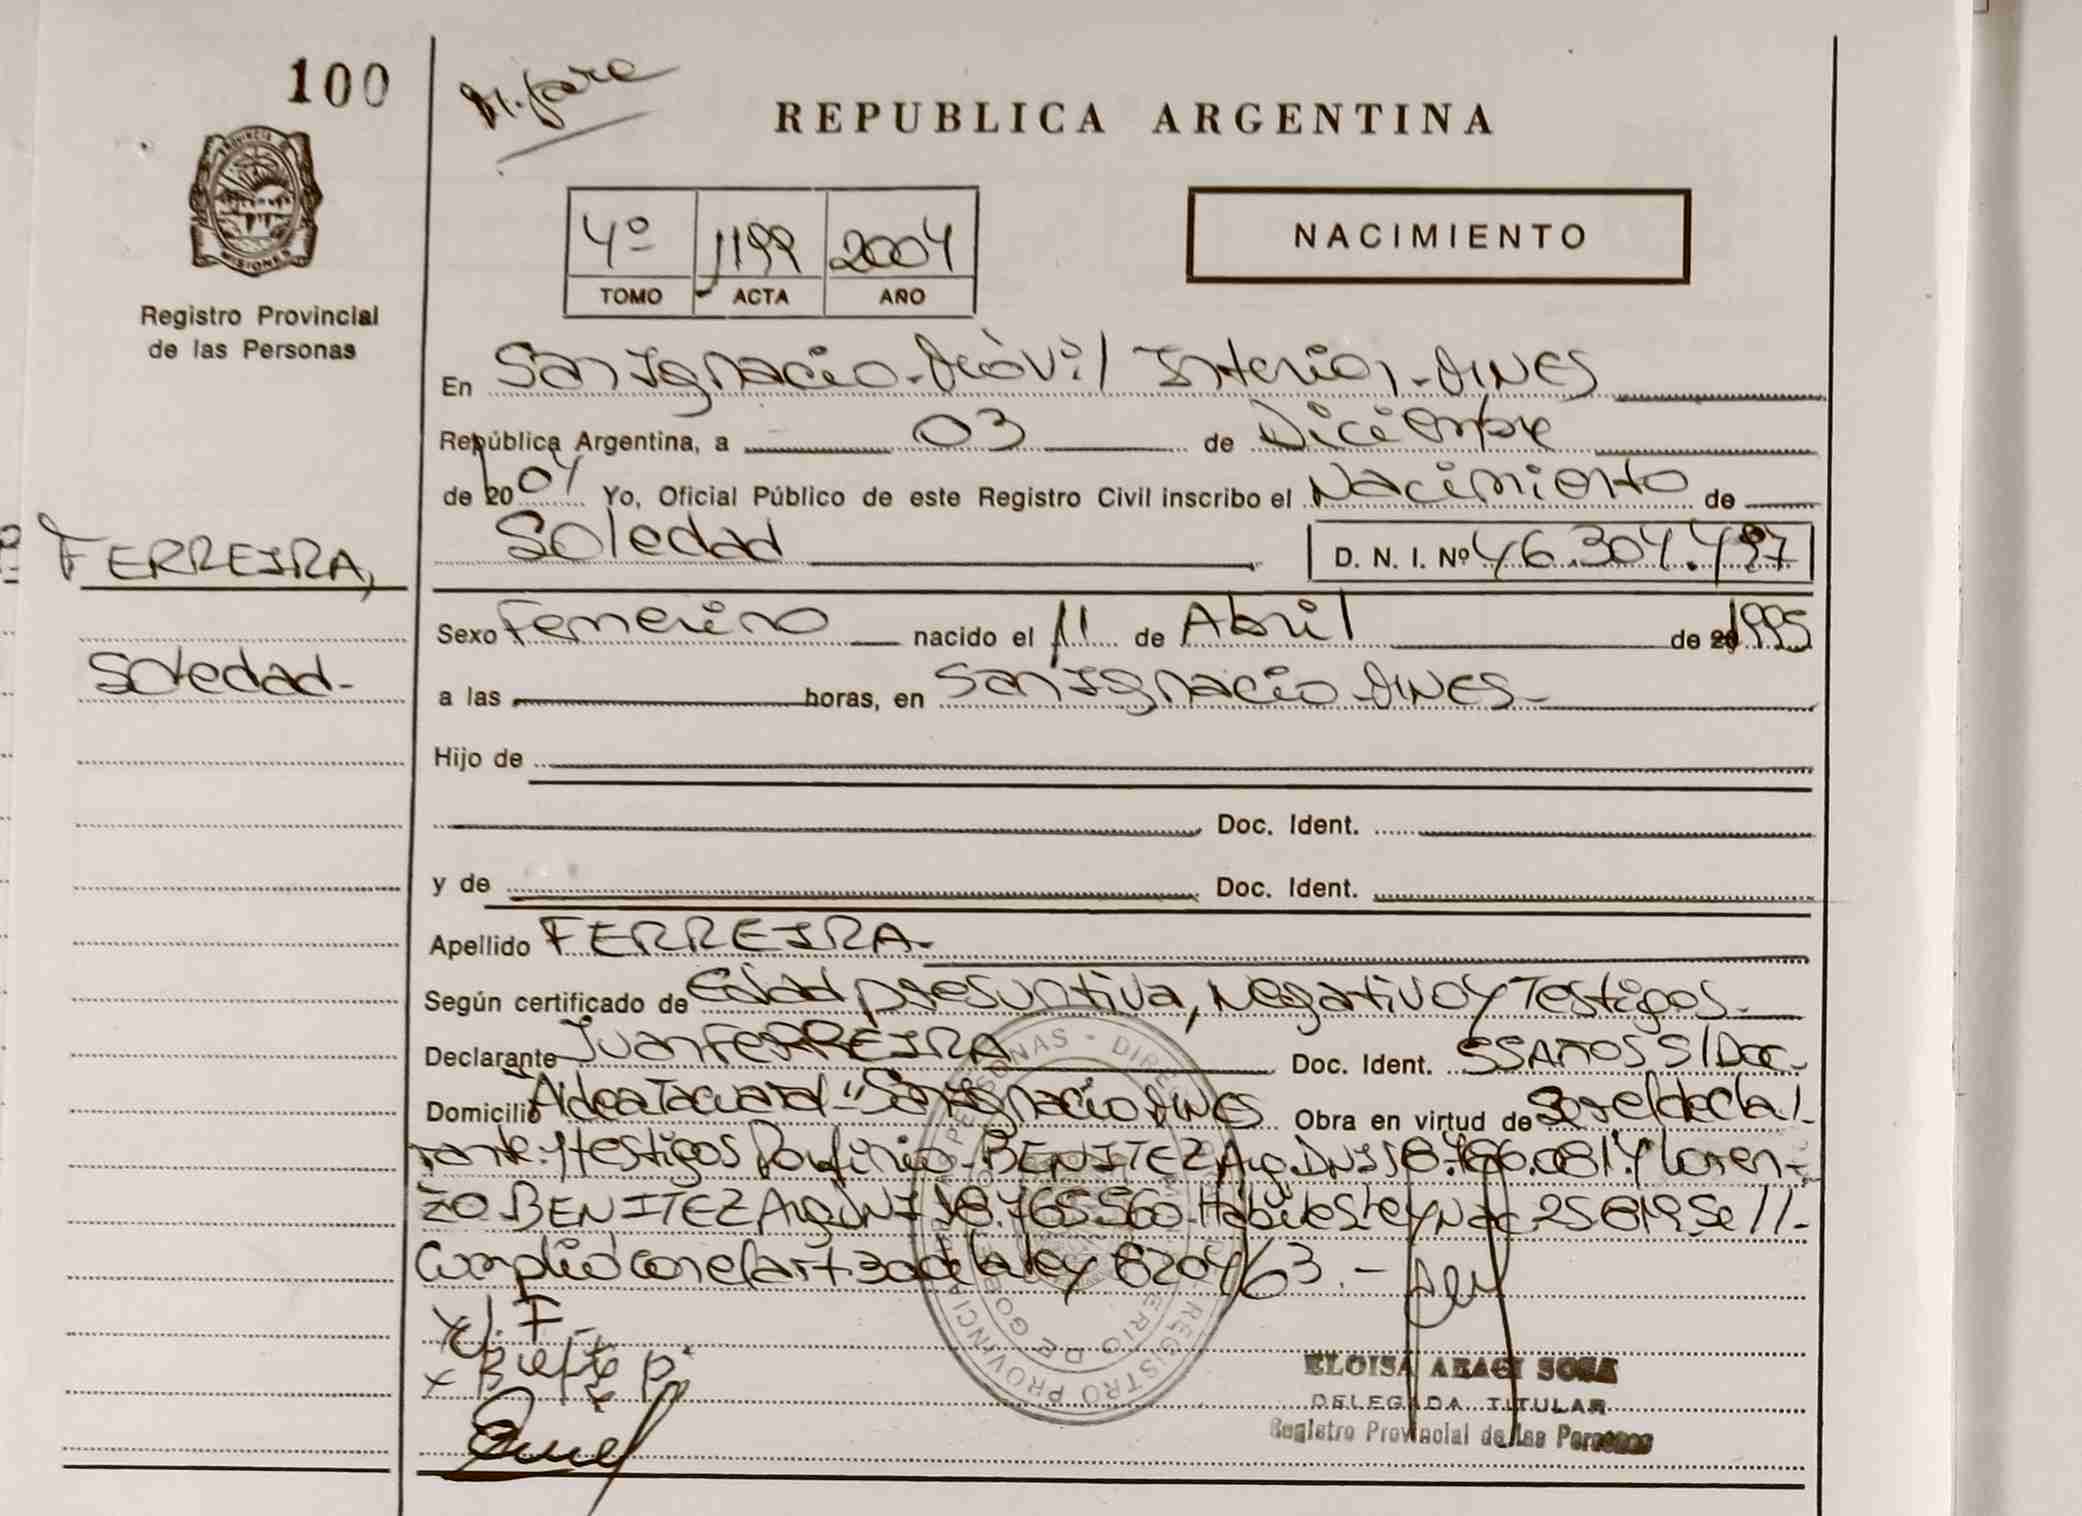 100
PROVINCIA
MISIONES
Registro Provincial
de las Personas
FERREIRA,
Soledad-
REPUBLICA ARGENTINA
NACIMIENTO
4º 1199 2004
TOMO ACTA AÑO
En San Ignacio-Móvil Interior-MNES
República Argentina, a 03 de Diciembre
de 2004 Yo, Oficial Público de este Registro Civil inscribo el Nacimiento de
Soledad D. N. I. Nº 46.304.497
Sexo Femenino nacido el 11 de Abril de 20 1995
a las horas, en San Ignacio-MNES-
Hijo de
Doc. Ident.
y de Doc. Ident.
Apellido FERREIRA-
Según certificado de Edad presuntiva, Negativo y Testigos-
Declarante Juan FERREIRA Doc. Ident. 55 AÑOS S/Doc.
Domicilio Aldea Tacuaral-San Ignacio MNES Obra en virtud de Ser el decla-
rante.y testigos Porfirio-BENITEZ Arg.DNI 18.766.081.y Loren-
zo BENITEZ Arg DNI 18.765.560- Ley Nac 25819 Se //-
Cumplió con el art.30 de la ley 8204/63.-
J. F
DELEGADA TITULAR
Registro Provincial de las Personas